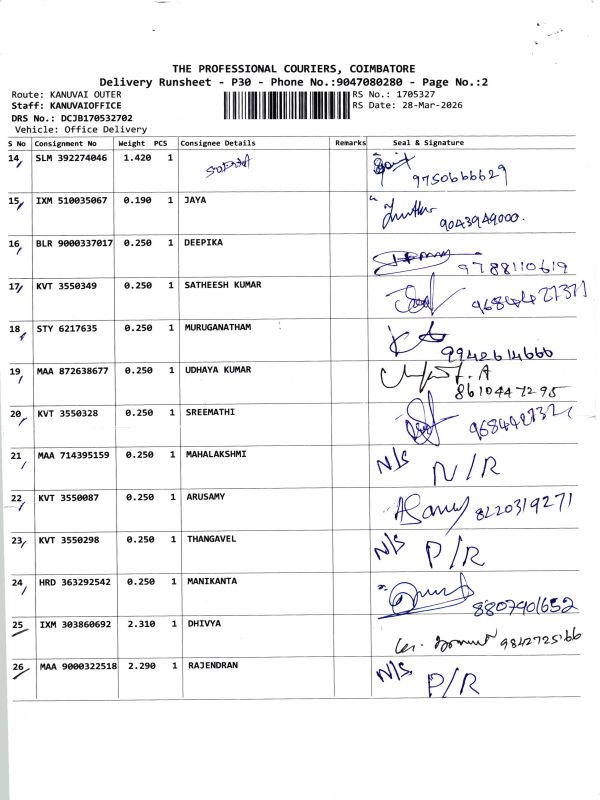 THE PROFESSIONAL COURIERS, COIMBATORE
Delivery Runsheet - P30 - Phone No.:9047080280 - Page No.:2
Route: KANUVAI OUTER RS No.: 1705327
Staff: KANUVAIOFFICE RS Date: 28-Mar-2026
DRS No.: DCJB170532702
Vehicle: Office Delivery
S No Consignment No Weight PCS Consignee Details Remarks Seal & Signature
14 SLM 392274046 1.420 1
9750666629
15 IXM 510035067 0.190 1 JAYA
9043949000.
16 BLR 9000337017 0.250 1 DEEPIKA
9788110619
17 KVT 3550349 0.250 1 SATHEESH KUMAR
9684427371
18 STY 6217635 0.250 1 MURUGANATHAM
9942614666
19 MAA 872638677 0.250 1 UDHAYA KUMAR
8610447295
20 KVT 3550328 0.250 1 SREEMATHI
21 MAA 714395159 0.250 1 MAHALAKSHMI N/S N/R
22 KVT 3550087 0.250 1 ARUSAMY
8220319271
23 KVT 3550298 0.250 1 THANGAVEL N/S P/R
24 HRD 363292542 0.250 1 MANIKANTA
8807901652
25 IXM 303860692 2.310 1 DHIVYA
9842725166
26 MAA 9000322518 2.290 1 RAJENDRAN N/S P/R